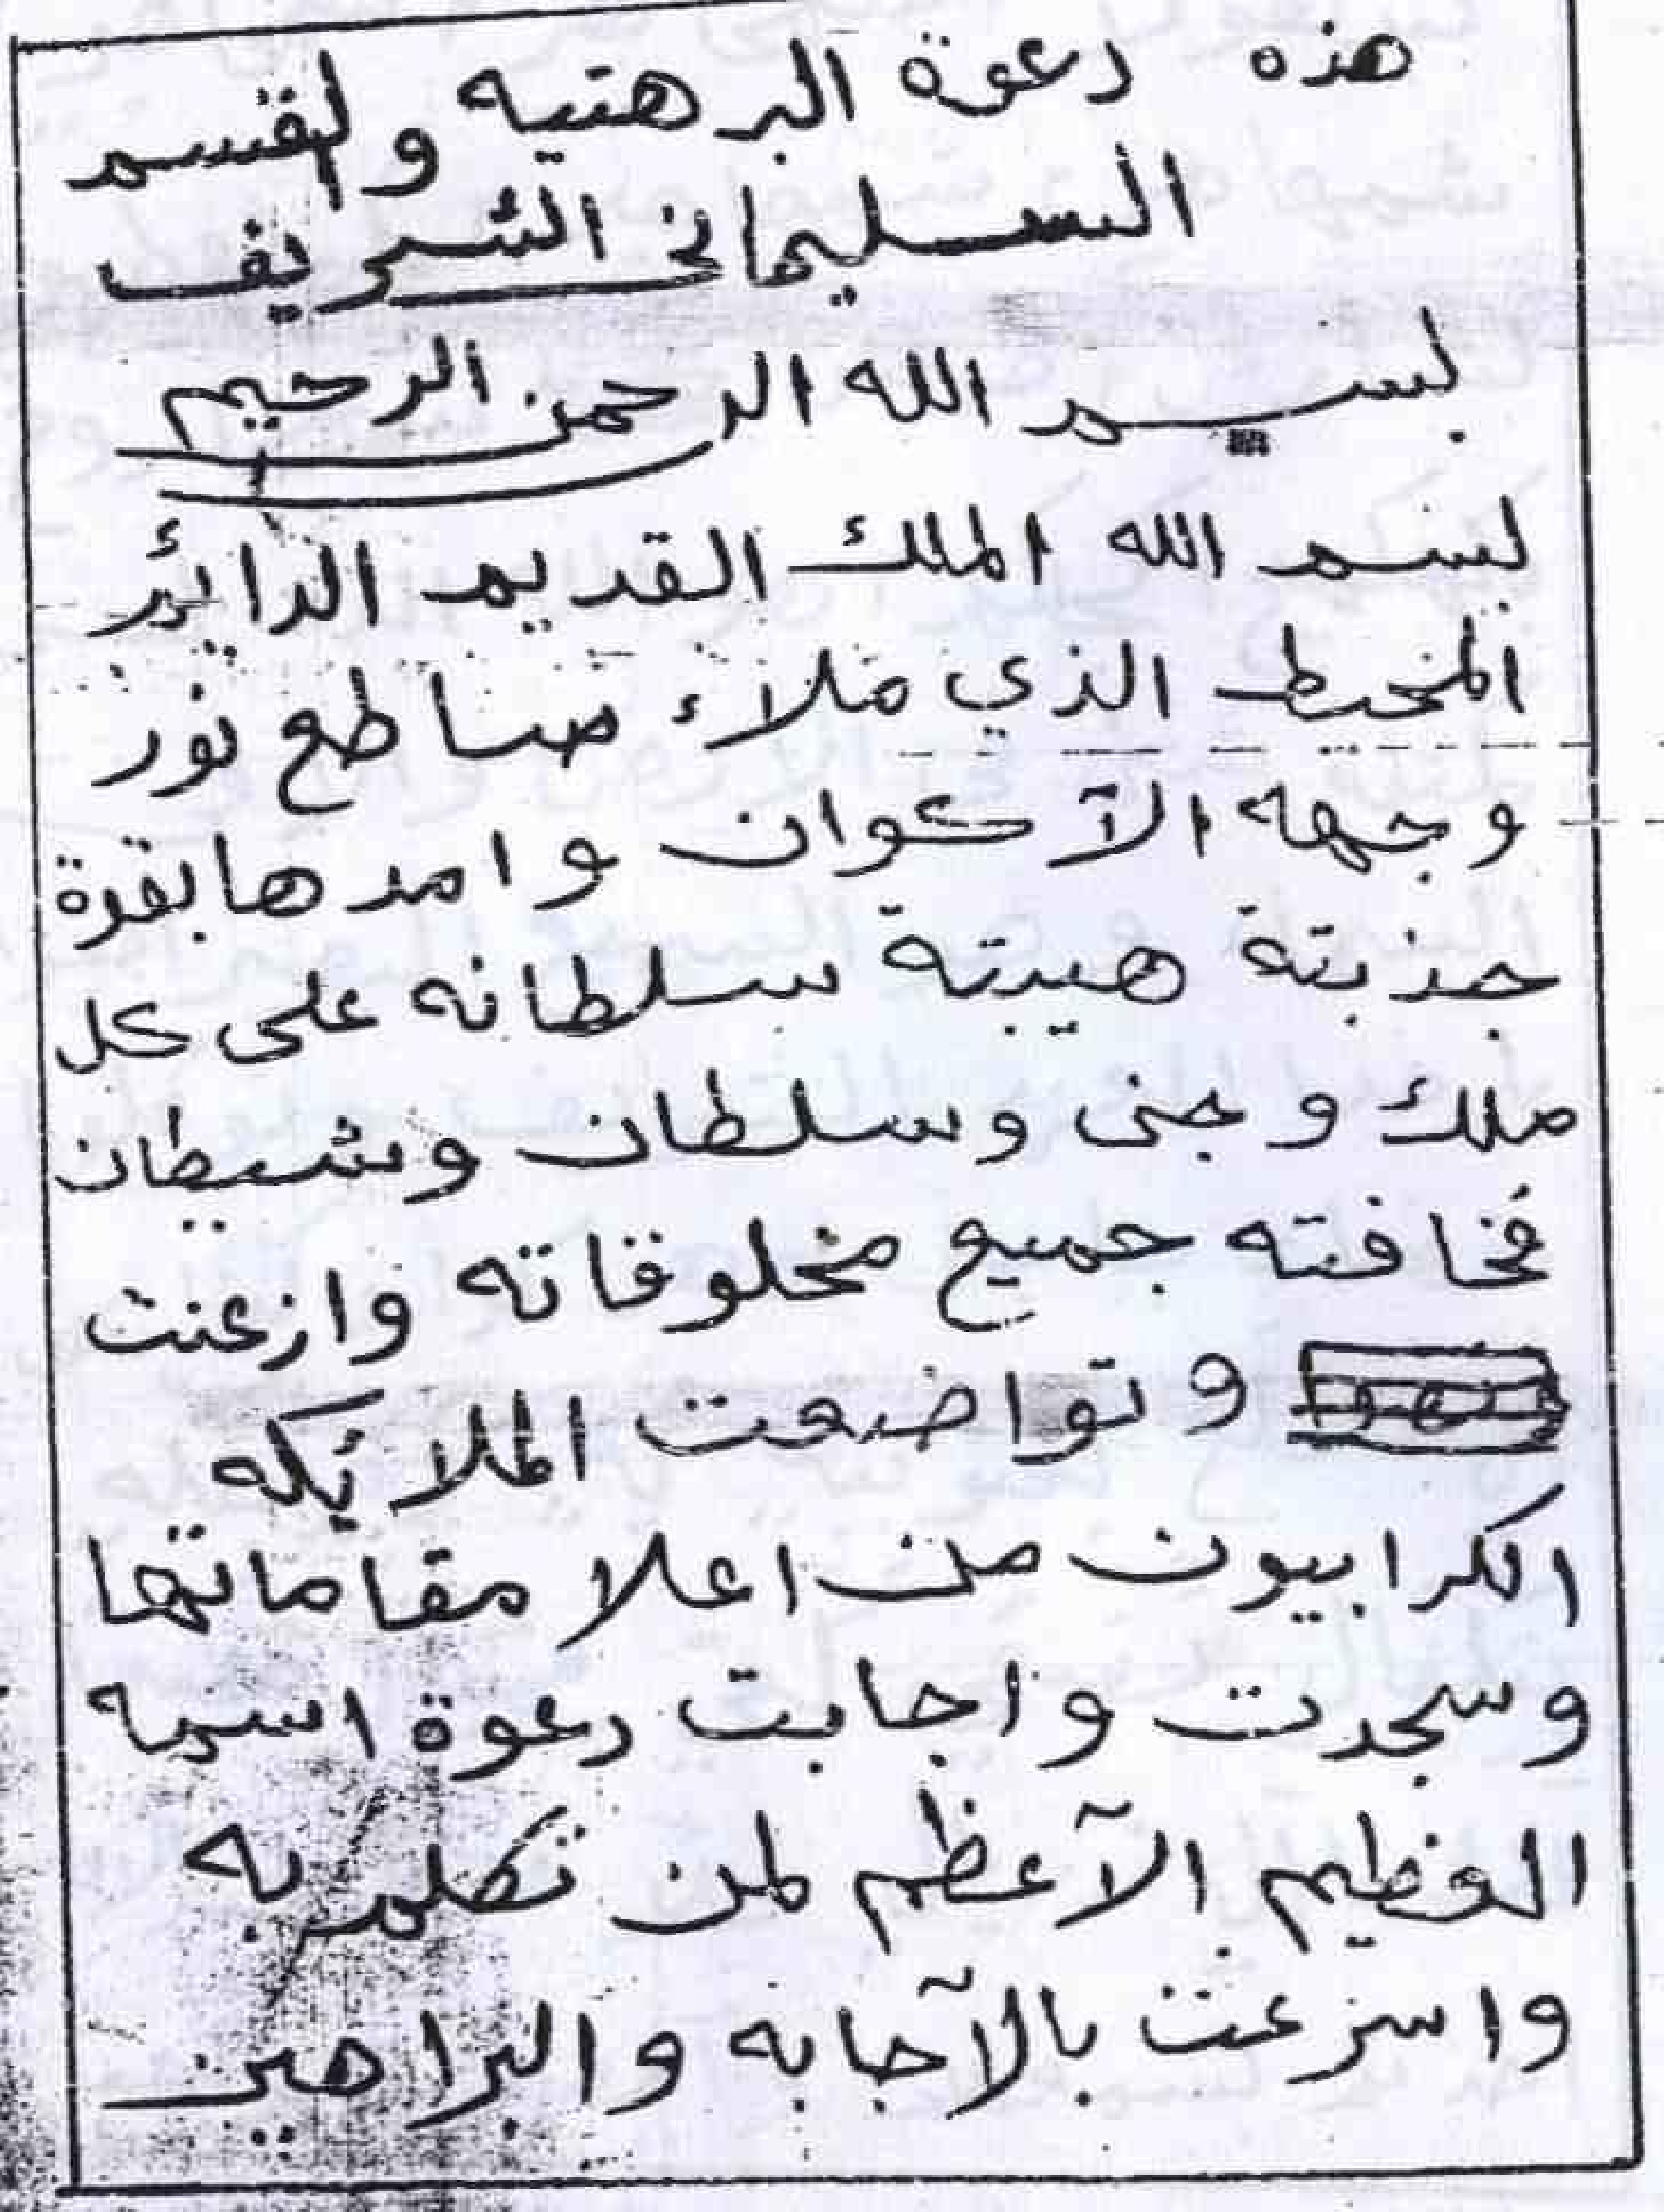 هذه دعوة البرهتيه ولقسم
السليماني الشريف
بسم الله الرحمن الرحيم
بسم الله الملك القديم الدائر
المحيط الذي ملاء صاطع نور
وجهه الآكوان وامدها بقوة
جذبتة هيبتة سلطانه على كل
ملك وجنى وسلطان وشيطان
فخافته جميع مخلوقاته وازعنت
وتواضعت الملائكه
الكرابيون من اعلا مقاماتها
وسجدت واجابت دعوة اسمه
العظيم الآعظم لمن تكلم به
واسرعت بالآجابه والبراهين